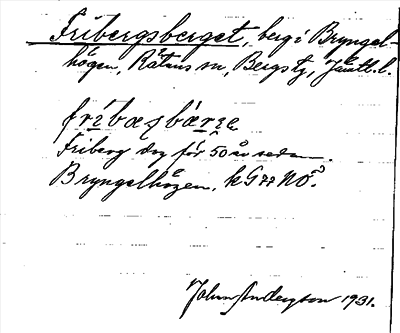 Fribergsberget, berg i Bryngel-
högen, Rätans sn, Bergs tg, Jämtl. l.
Friberg dog för 50 år sedan.
Bryngelhögen, k G 77 NO.
John Andersson 1931.